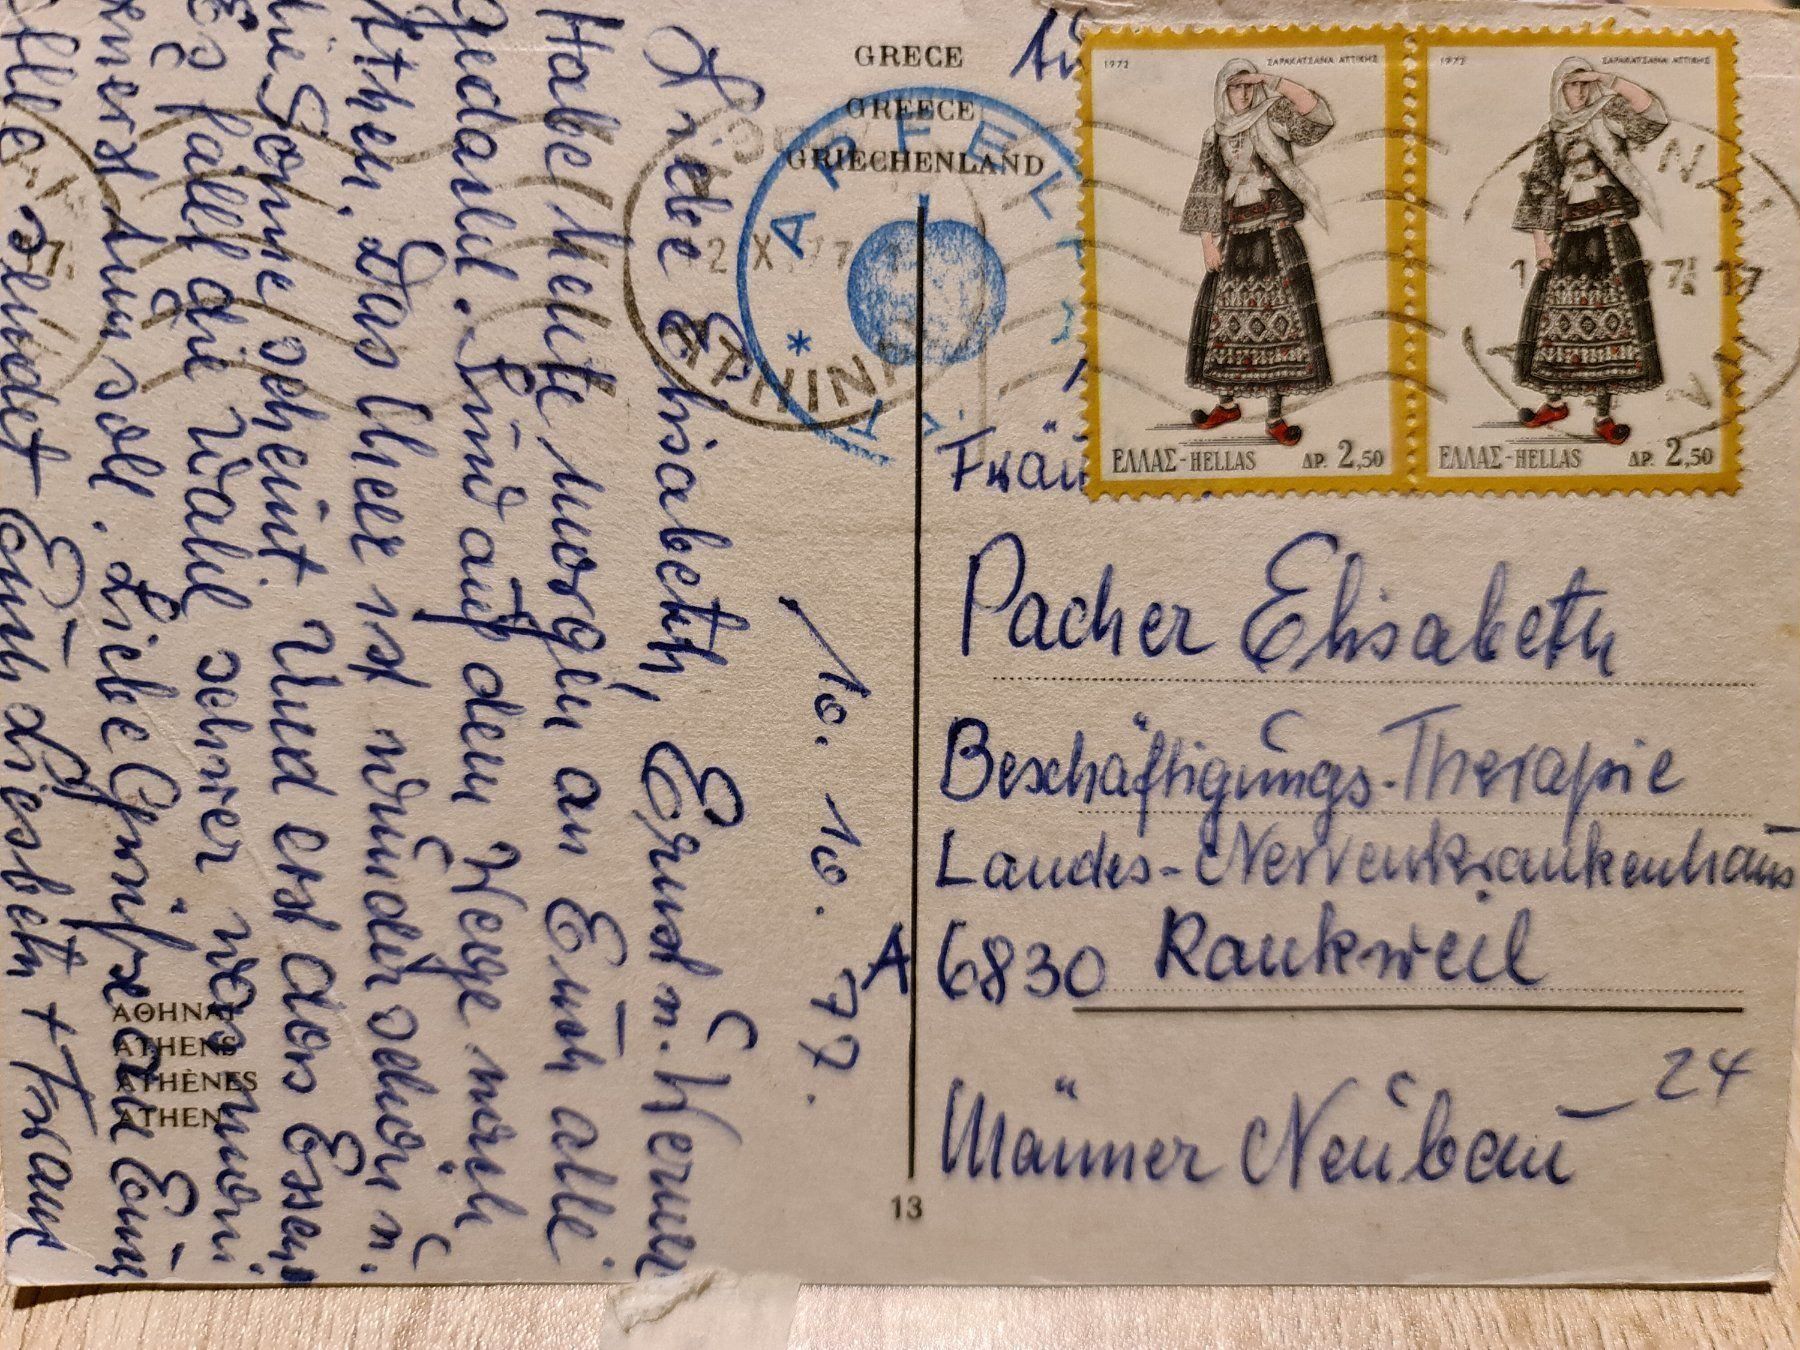 GRECE
GREECE
GRIECHENLAND
1972
ΣΑΡΑΚΑΤΣΑΝΑ ΑΤΤΙΚΗΣ
ΕΛΛΑΣ-HELLAS ΔΡ. 2,50
1972
ΣΑΡΑΚΑΤΣΑΝΑ ΑΤΤΙΚΗΣ
ΕΛΛΑΣ-HELLAS ΔΡ. 2,50
10.10.77.
Liebe Elisabeth, Ernst u. Werner
Habe heute morgen an Euch alle
gedacht. Sind auf dem Wege nach
Athen. Das Meer ist wunderschön u.
die Sonne scheint. Und erst das Essen
Es fällt die Wahl schwer was man
zuerst tun soll. Liebe Grüße an Euch
alle sendet Euch Liesbeth + Franz
Pacher Elisabeth
Beschäftigungs-Therapie
Landes-Nervenkrankenhaus
A 6830 Rankweil
Männer Neubau - 24
ΑΘΗΝΑΙ
ATHENS
ATHÈNES
ATHEN
13